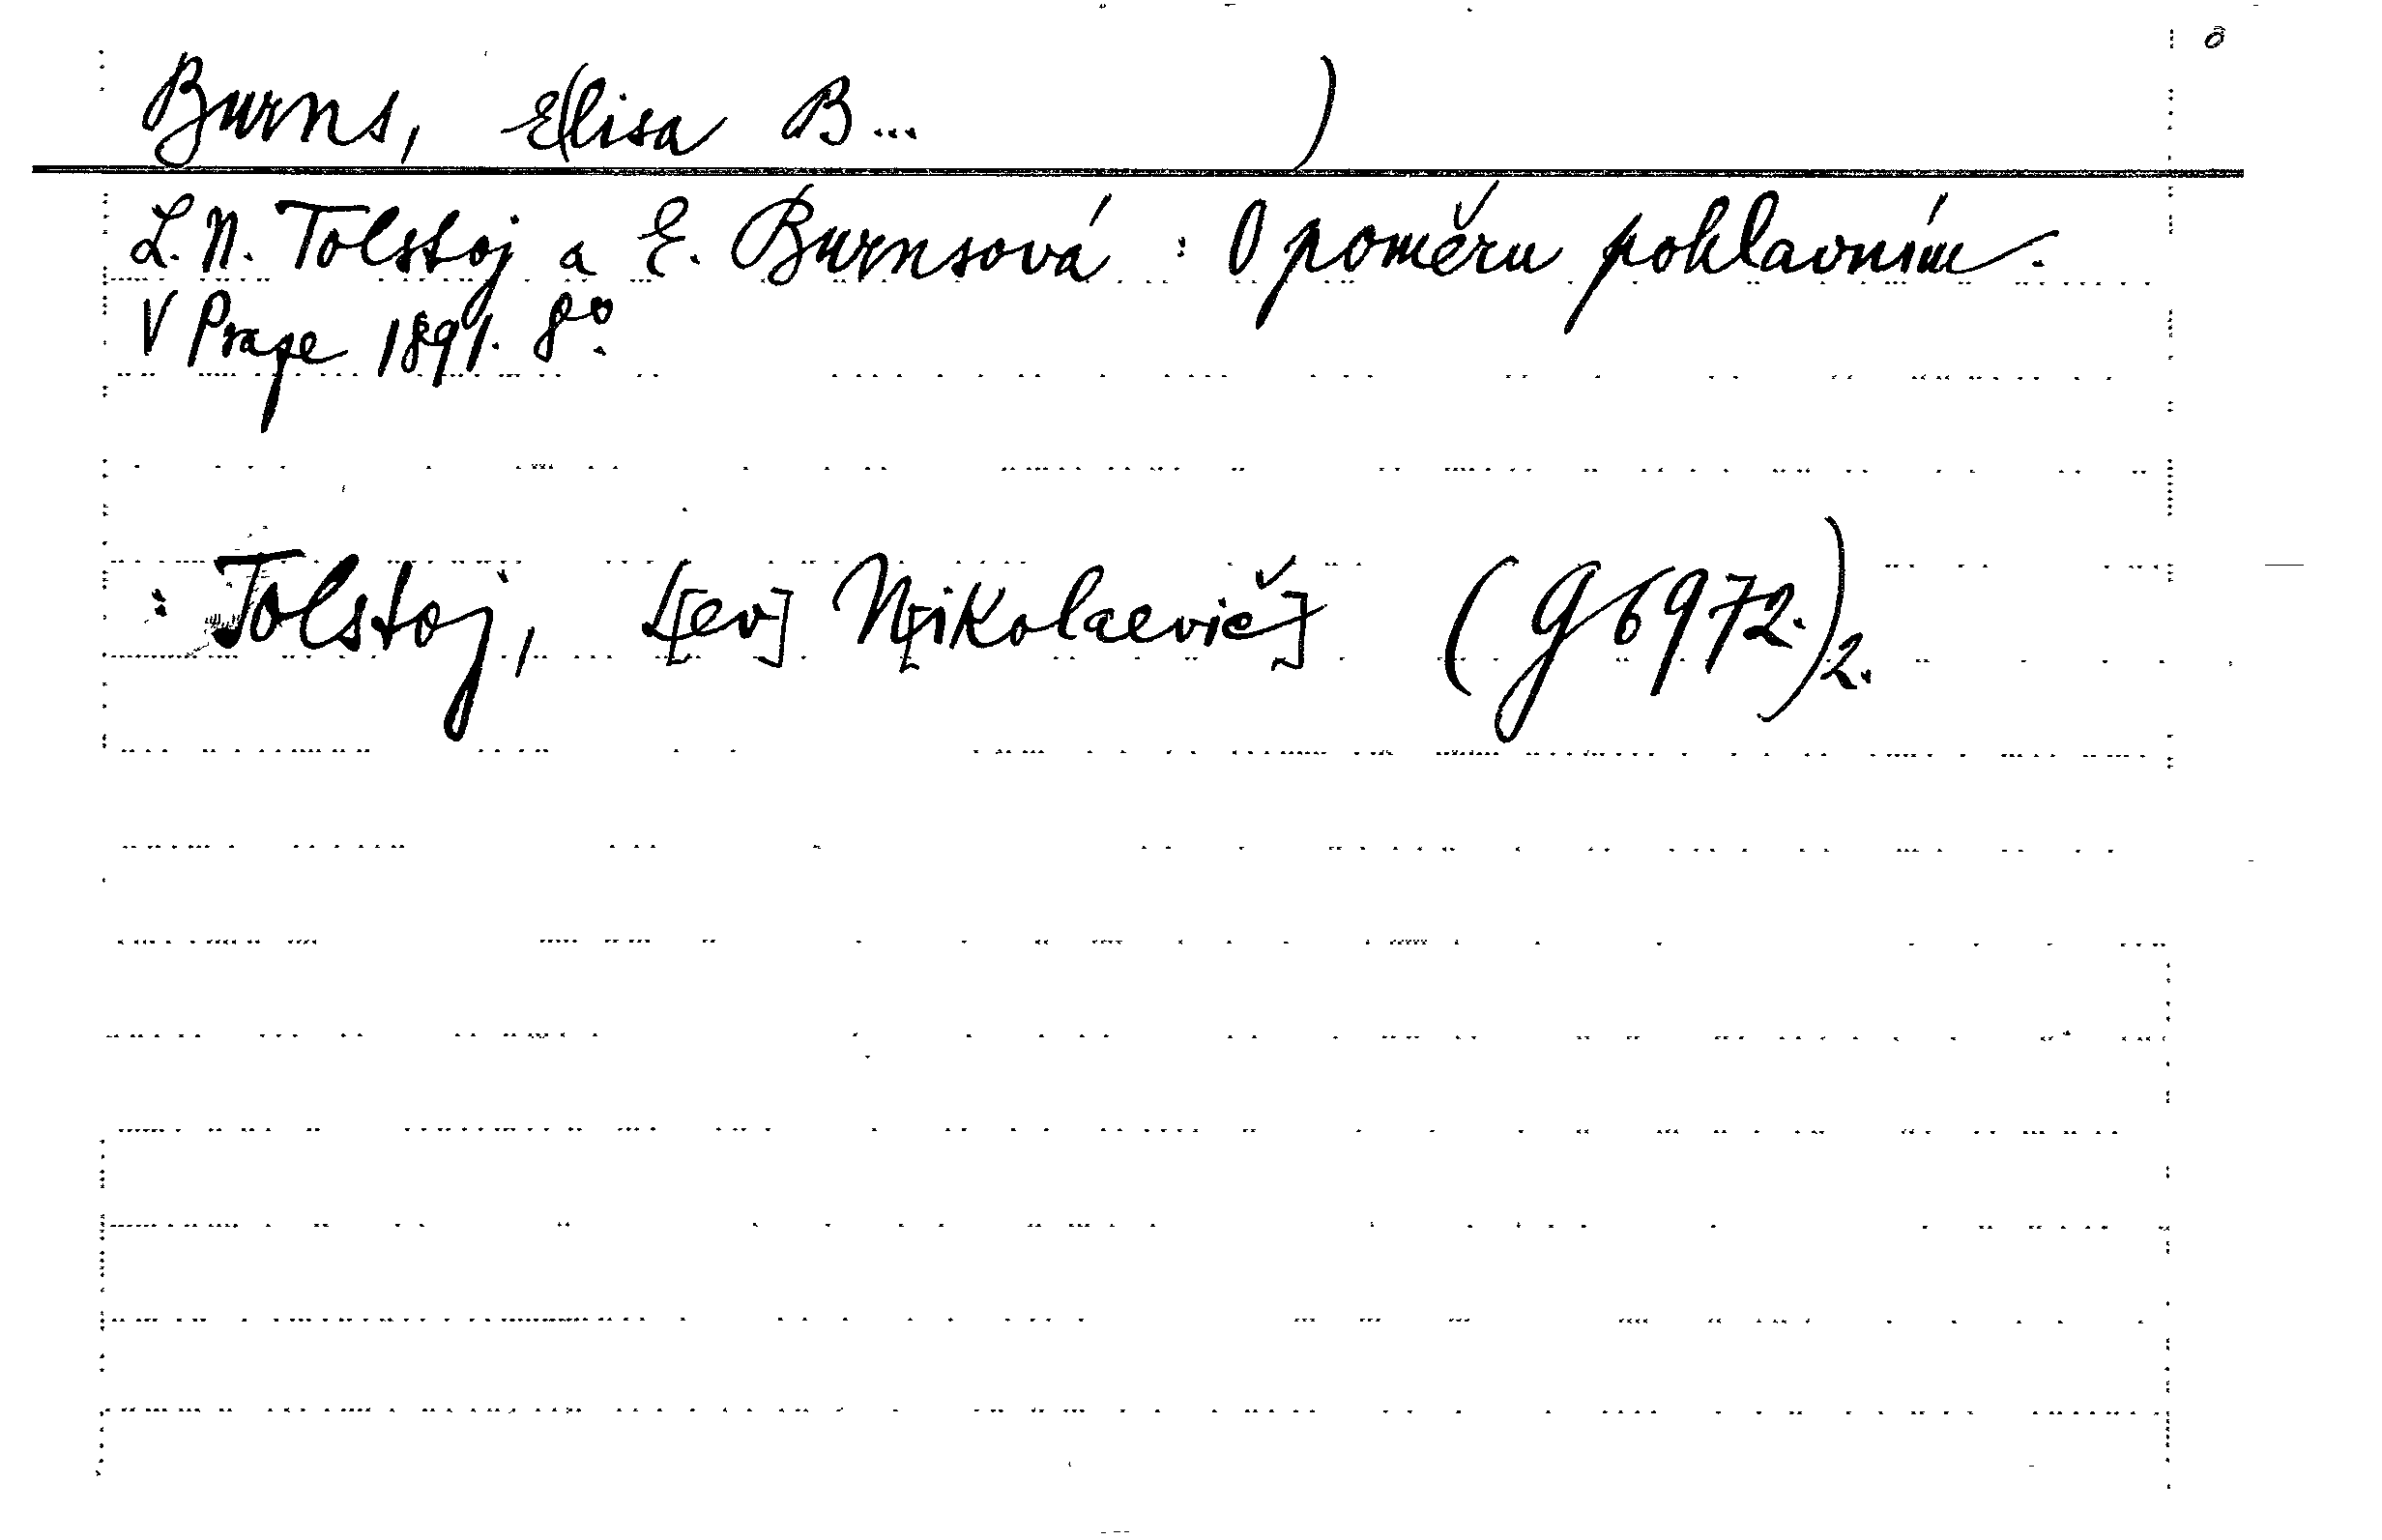 Burns, E(lisa B... )
L. N. Tolstoj a E. Burnsová : O poměru pohlavním.
V Praze 1891. 8º.
: Tolstoj, L[ev] N[ikolaevič] (G 6972.)2.